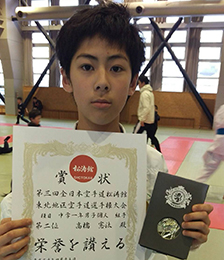 松涛館
SHOTOKAN
賞状
第三回全日本空手道松涛館
東北地区空手道選手権大会
種目 中学一年男子個人 組手
第二位 高橋 憲汰 殿
栄誉を讃える